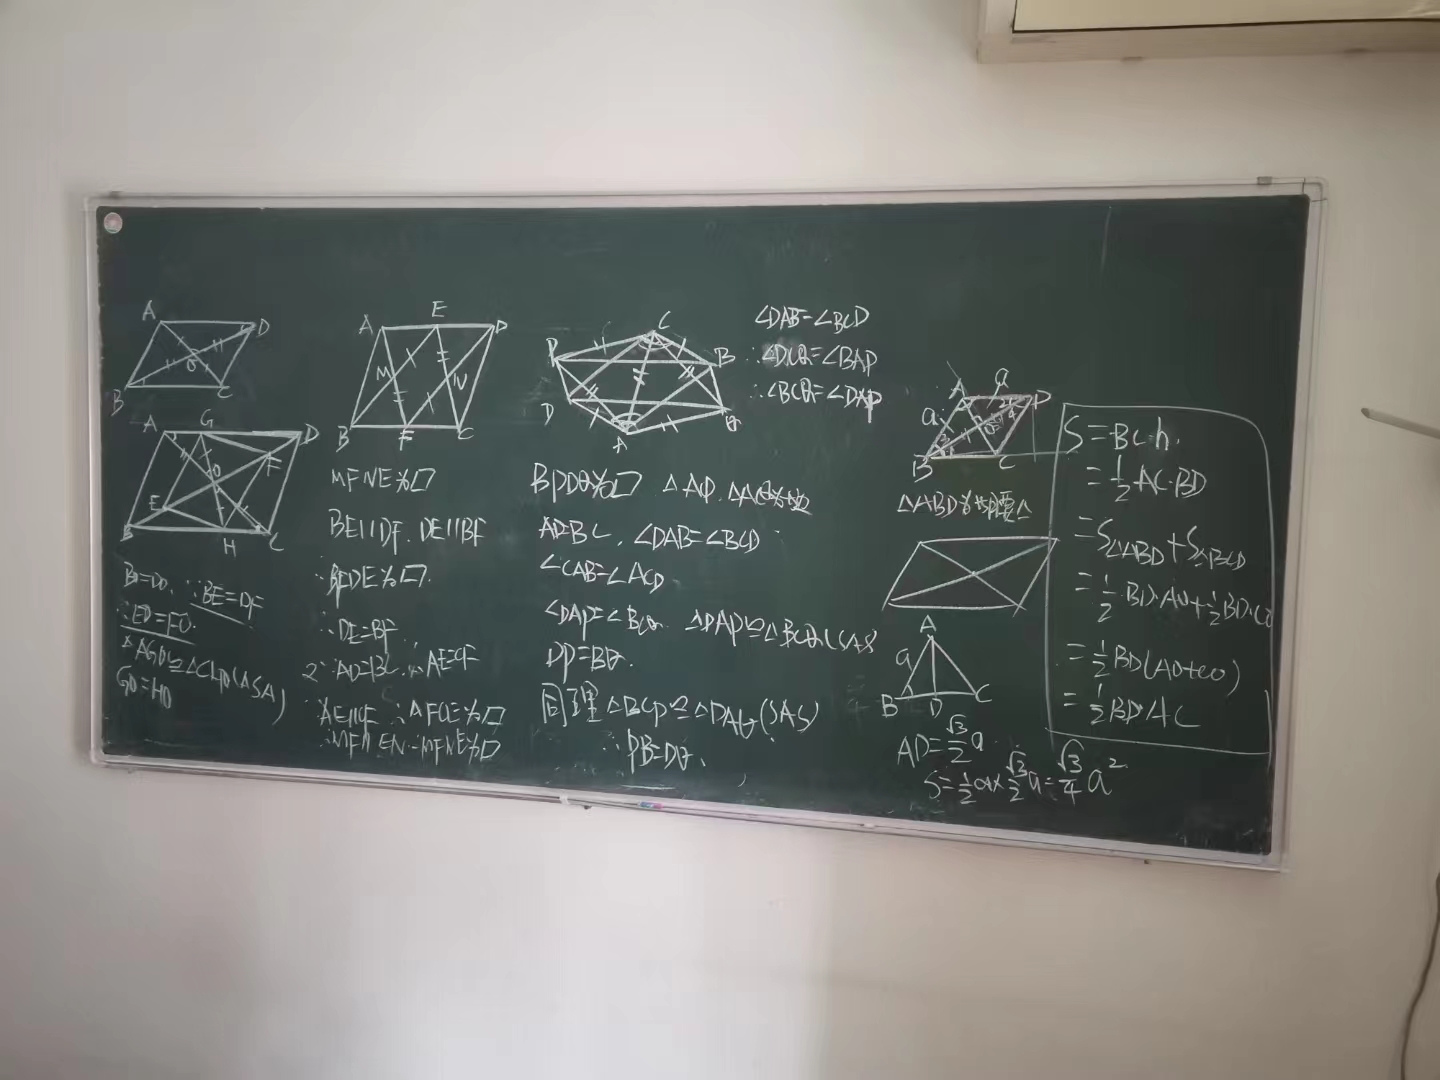 A
D
O
B
C
A
G
D
O
F
E
B
H
C
BO=DO. ∵BE=DF
∴EO=FO.
△AGO≌△CHO(ASA)
GO=HO
A
E
D
M
N
B
F
C
MFNE为▱
BE∥DF. DE∥BF
∴BFDE为▱.
∴DE=BF
2 ∵AD=BC. ∴AE=CF
∵AE∥CF ∴AFCE为▱
∴MF∥EN ∴MFNE为▱
C
P
B
D
Q
A
∠DAB=∠BCD
∴∠DCQ=∠BAP
∴∠BCQ=∠DAP
BPDQ为▱
AD=BC. ∠DAB=∠BCD
∠CAB=∠ACD
∠DAP=∠BCQ △DAP≌△BCQ(SAS)
DP=BQ.
同理△BCP≌△DAQ(SAS)
∴PB=DQ.
A
a
D
a
O
B
C
△ABD为等腰△
A
a
B
D
C
AD=√3/2 a
S=1/2 a×√3/2 a=√3/4 a²
S=BC·h.
=1/2 AC·BD
=S△ABD+S△BCD
=1/2 BD·AO+1/2 BD·CO
=1/2 BD(AO+CO)
=1/2 BD·AC